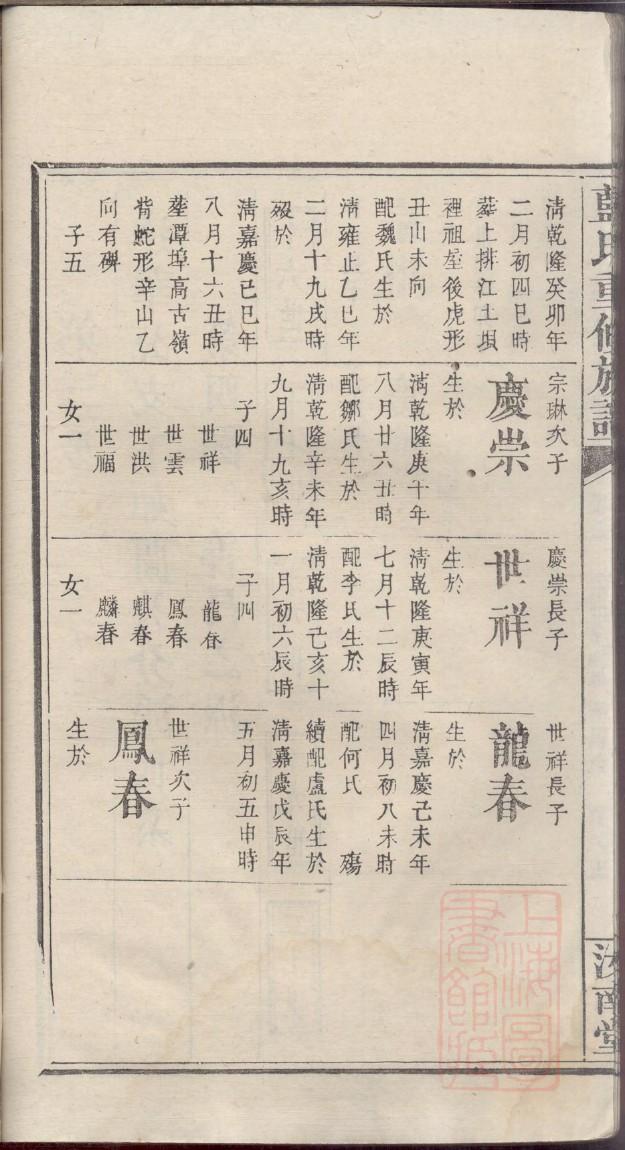 藍氏重修族譜
清乾隆癸卯年
二月初四巳時
葬上排江土垻
裡祖塋後虎形
丑山未向
配魏氏生於
清雍正乙巳年
二月十九戌時
歿於
清嘉慶己巳年
八月十六丑時
塟潭埠高古嶺
背蛇形辛山乙
向有碑
子五
宗琳次子
慶崇
生於
清乾隆庚午年
八月廿六丑時
配鄒氏生於
清乾隆辛未年
九月十九亥時
子四
世祥
世雲
世洪
世福
女一
慶崇長子
世祥
生於
清乾隆庚寅年
七月十二辰時
配李氏生於
清乾隆己亥十
一月初六辰時
子四
龍春
鳳春
麒春
麟春
女一
世祥長子
龍春
生於
清嘉慶己未年
四月初八未時
配何氏 殤
續配盧氏生於
清嘉慶戊辰年
五月初五申時
世祥次子
鳳春
生於
汝南堂
上海圖
書館藏